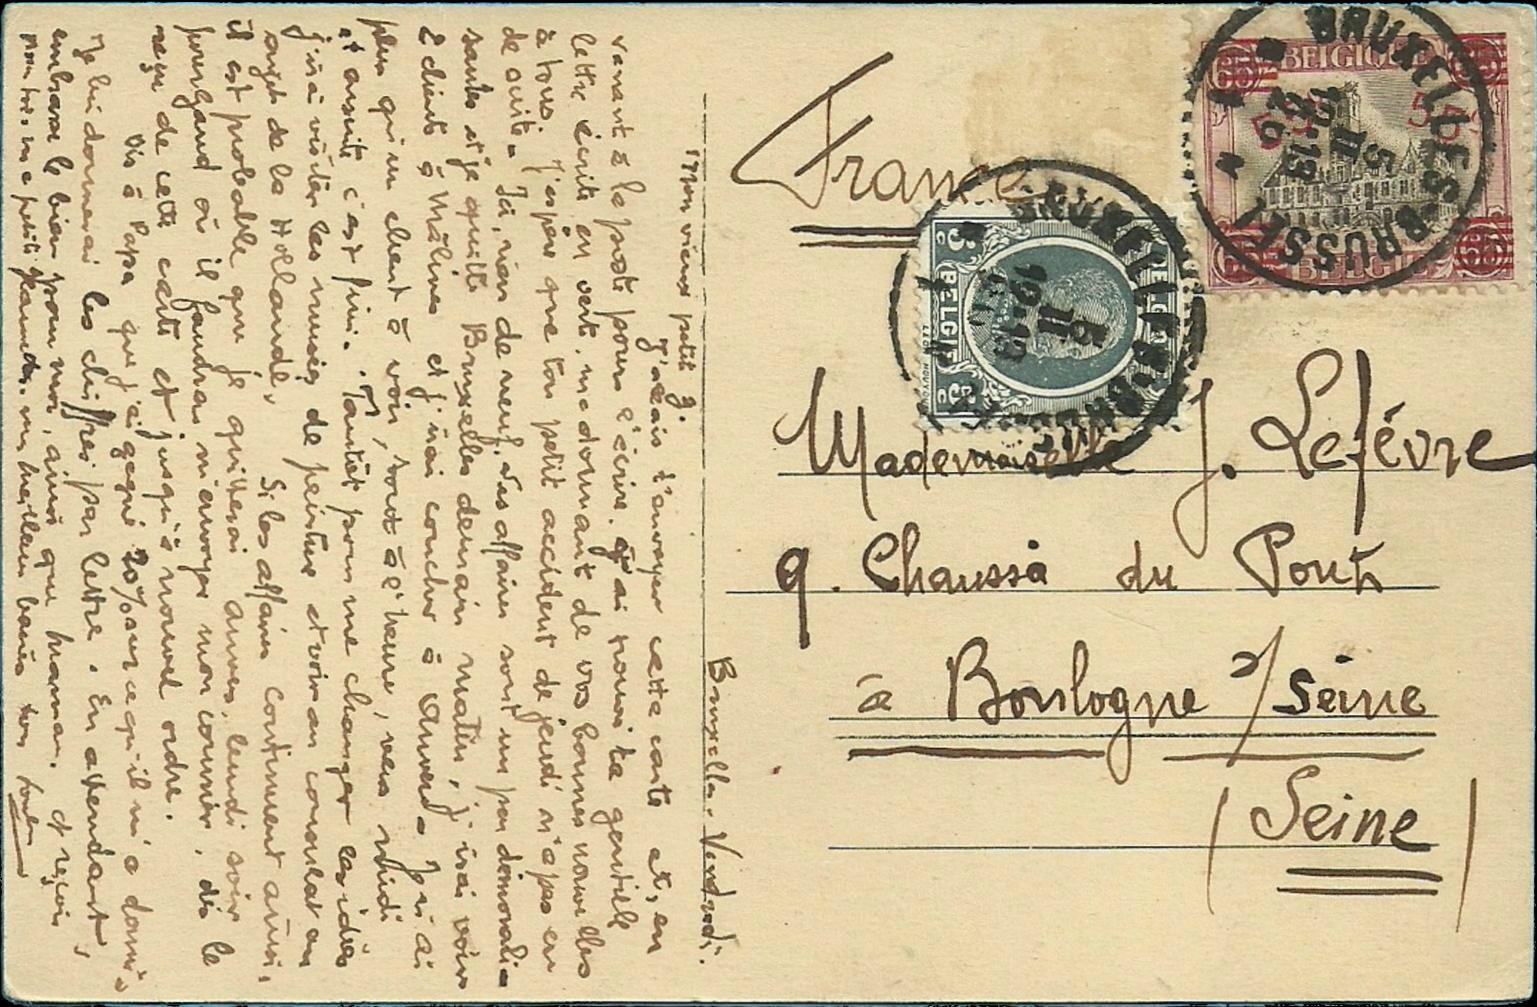 Bruxelles - Vendredi.
Mon vieux petit J.
J'allais t'envoyer cette carte et, en
venant à la poste pour l'écrire, j'ai trouvé ta gentille
lettre écrite en vert, me donnant de vos bonnes nouvelles
à tous. J'espère que ton petit accident de jeudi n'a pas eu
de suite - Ici, rien de neuf, les affaires sont un peu démorali-
santes et je quitte Bruxelles demain matin, j'irai voir
2 clients à Malines et j'irai coucher à Anvers - Je n'ai
plus qu'un client à voir, tout à l'heure, vers midi
et ensuite c'est fini. Tantôt pour me changer les idées
j'irai visiter les musées de peinture et voir au consulat au
sujet de la Hollande. Si les affaires continuent ainsi,
il est probable que je quitterai Anvers, lundi soir
pour Gand où il faudra m'envoyer mon courrier, dis le
reçu de cette carte et jusqu'à nouvel ordre.
Dis à Papa que j'ai gagné 20% sur ce qu'il m'a donné,
Je lui donnerai les chiffres par lettre. En attendant,
embrasse le bien pour moi, ainsi que maman, et reçois
mon petit meilleurs baisers ton
France
Mademoiselle J. Lefèvre
9. Chaussée du Pont
à Boulogne s/Seine
(Seine)
BRUXELLES-BRUSSEL
12-13
5
II
26
BELGIQUE
BELGIË
55
BRUXELLES-BRUSSEL
12-13
5
II
BELGIQUE
BELGIË
5c 5c